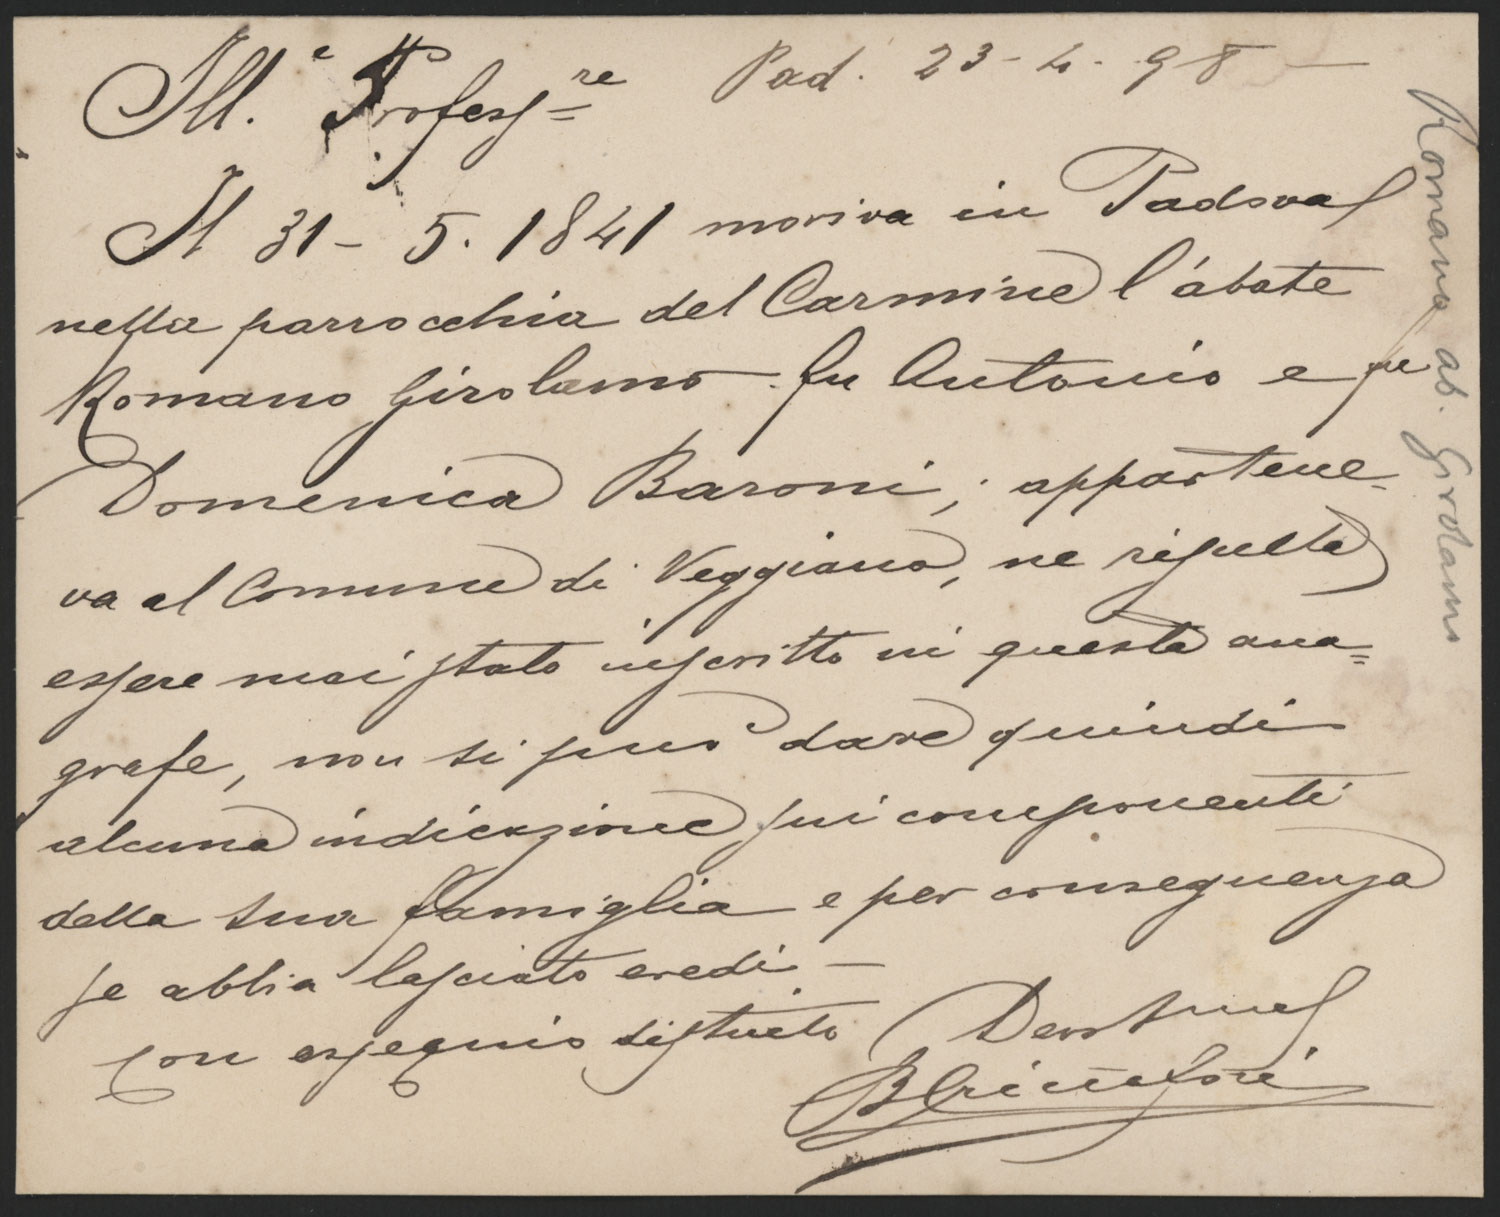 Ill.e Profess.re Pad. 23-4.98
Il 31-5.1841 moriva in Padova
nella parrocchia del Carmine l'abate
Romano Girolamo fu Antonio e fu
Domenica Baroni; appartene-
va al Comune di Veggiano, ne risulta
essere mai stato inscritto in questa ana=
grafe, non si può dare quindi
alcuna indicazione sui componenti
della sua famiglia e per conseguenza
se abbia lasciato eredi —
con ossequio distinto Devot
Romano ab. Girolamo